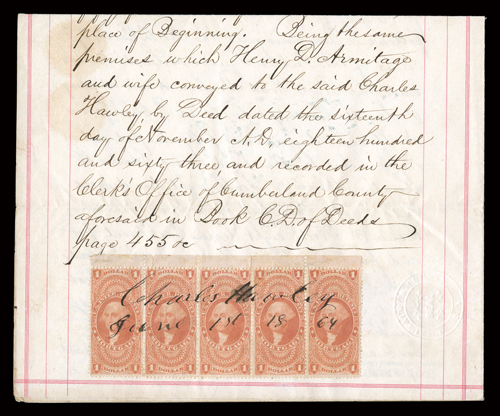 place of Beginning. Being the same
premises which Henry D. Armitage
and wife conveyed to the said Charles
Hawley, by Deed dated the sixteenth
day of November A.D. eighteen hundred
and sixty three, and recorded in the
Clerk's Office of Cumberland County
aforesaid in Book C.D. of Deeds
page 455 &c
1 1 1 1 1 1 1 1 1 1
Charles Hawley
June 1st 18 64
1 DOLLAR 1 1 DOLLAR 1 1 DOLLAR 1 1 DOLLAR 1 1 DOLLAR 1